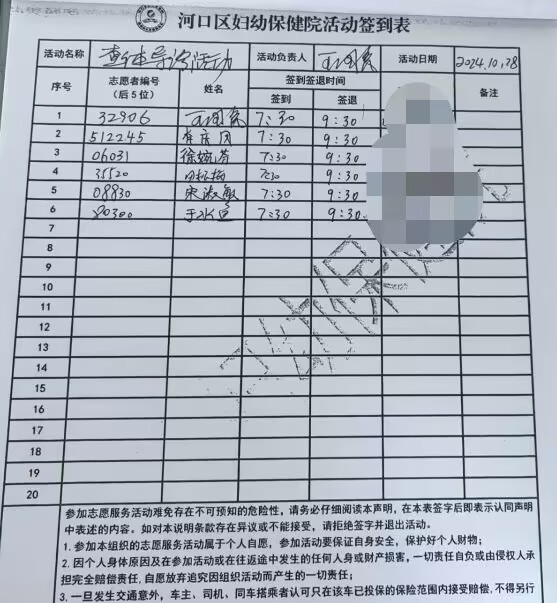 河口区妇幼保健院活动签到表
活动名称 查体导诊活动 活动负责人 活动日期 2024.10.28
序号 志愿者编号 (后5位) 姓名 签到签退时间 签到 签退 备注
1 32906 7:30 9:30
2 512245 7:30 9:30
3 06031 徐婉芳 7:30 9:30
4 35520 7:30 9:30
5 08830 宋淑敏 7:30 9:30
6 80300 7:30 9:30
7
8
9
10
11
12
13
14
15
16
17
18
19
20
参加志愿服务活动难免存在不可预知的危险性，请务必仔细阅读本声明，在本表签字后即表示认同声明
中表述的内容。如对本说明条款存在异议或不能接受，请拒绝签字并退出活动。
1. 参加本组织的志愿服务活动属于个人自愿，参加活动要保证自身安全，保护好个人财物；
2. 因个人身体原因及在参加活动或在往返途中发生的任何人身或财产损害，一切责任自负或由侵权人承
担完全赔偿责任，自愿放弃追究因组织活动而产生的一切责任；
3. 一旦发生交通意外，车主、司机、同车搭乘者认可只在该车已投保的保险范围内接受赔偿，不得另行